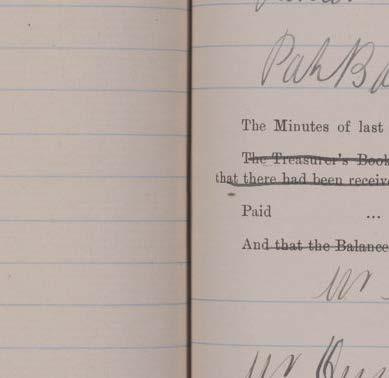 Pah Ba
The Minutes of last
The Treasurer's Book
that there had been receive
Paid ...
And that the Balance
Mr
Mr